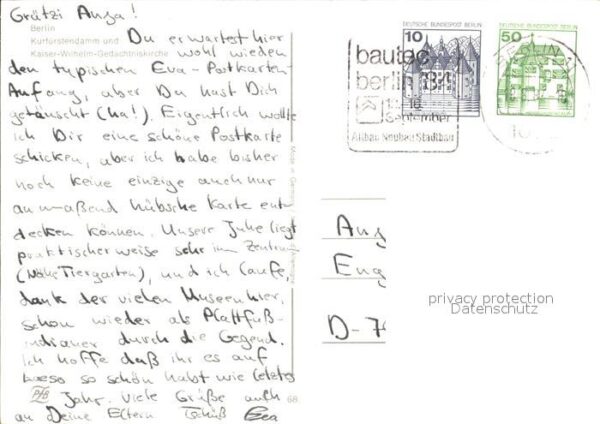 Grützi Anga!
Berlin
Kurfürstendamm und
Kaiser-Wilhelm-Gedächtniskirche
Du erwartest hier
wohl wieden
den typischen Eva-Postkarten-
Anfang, aber Du hast Dich
getäuscht (ha!). Eigentlich wollte
ich Dir eine schöne Postkarte
schicken, aber ich habe bisher
noch keine einzige auch nur
anmaßend hübsche Karte ent-
decken können. Unsere Juhe liegt
praktischerweise sehr im Zentrum
(Nähe Tiergarten), und ich laufe,
dank der vielen Museen hier,
schon wieder als Plattfuß-
indianer durch die Gegend.
Ich hoffe daß ihr es auf
so schön habt wie letztes
Jahr. Viele Grüße auch
an Deine Eltern Tschüß Eva
PFB
68
DEUTSCHE BUNDESPOST BERLIN
10
DEUTSCHE BUNDESPOST BERLIN
50
bautec
berlin '84
September
Altbau Neubau Stadtbau
BERLIN
Ang
Eng
D-7
privacy protection
Datenschutz